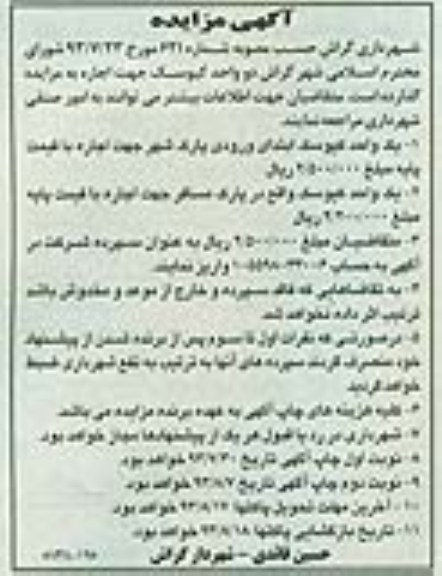 آگهی مزایده
شهرداری گراش حسب مصوبه شماره ۶۳۱ مورخ ۹۳/۷/۲۳ شورای
محترم اسلامی شهر گراش دو واحد کیوسک جهت اجاره به مزایده
گذارده است. متقاضیان جهت اطلاعات بیشتر می توانند به امور صنفی
شهرداری مراجعه نمایند.
۱- یک واحد کیوسک ابتدای ورودی پارک شهر جهت اجاره با قیمت
پایه مبلغ ۲/۵۰۰/۰۰۰ ریال
۲- یک واحد کیوسک واقع در پارک مسافر جهت اجاره با قیمت پایه
مبلغ ۲/۲۰۰/۰۰۰ ریال
۳- متقاضیان مبلغ ۲/۵۰۰/۰۰۰ ریال به عنوان سپرده شرکت در
آگهی به حساب واریز نمایند.
۴- به تقاضاهایی که فاقد سپرده و خارج از موعد و مخدوش باشد
ترتیب اثر داده نخواهد شد.
۵- درصورتی که نفرات اول تا سوم پس از برنده شدن از پیشنهاد
خود منصرف گردند سپرده های آنها به ترتیب به نفع شهرداری ضبط
خواهد گردید.
۶- کلیه هزینه های چاپ آگهی به عهده برنده مزایده می باشد.
۷- شهرداری در رد یا قبول هر یک از پیشنهادها مجاز خواهد بود.
۸- نوبت اول چاپ آگهی تاریخ ۹۳/۷/۳۰ خواهد بود.
۹- نوبت دوم چاپ آگهی تاریخ ۹۳/۸/۷ خواهد بود.
۱۰- آخرین مهلت تحویل پاکتها ۹۳/۸/۱۷ خواهد بود.
۱۱- تاریخ بازگشایی پاکتها ۹۳/۸/۱۸ خواهد بود.
حسین قائدی - شهردار گراش